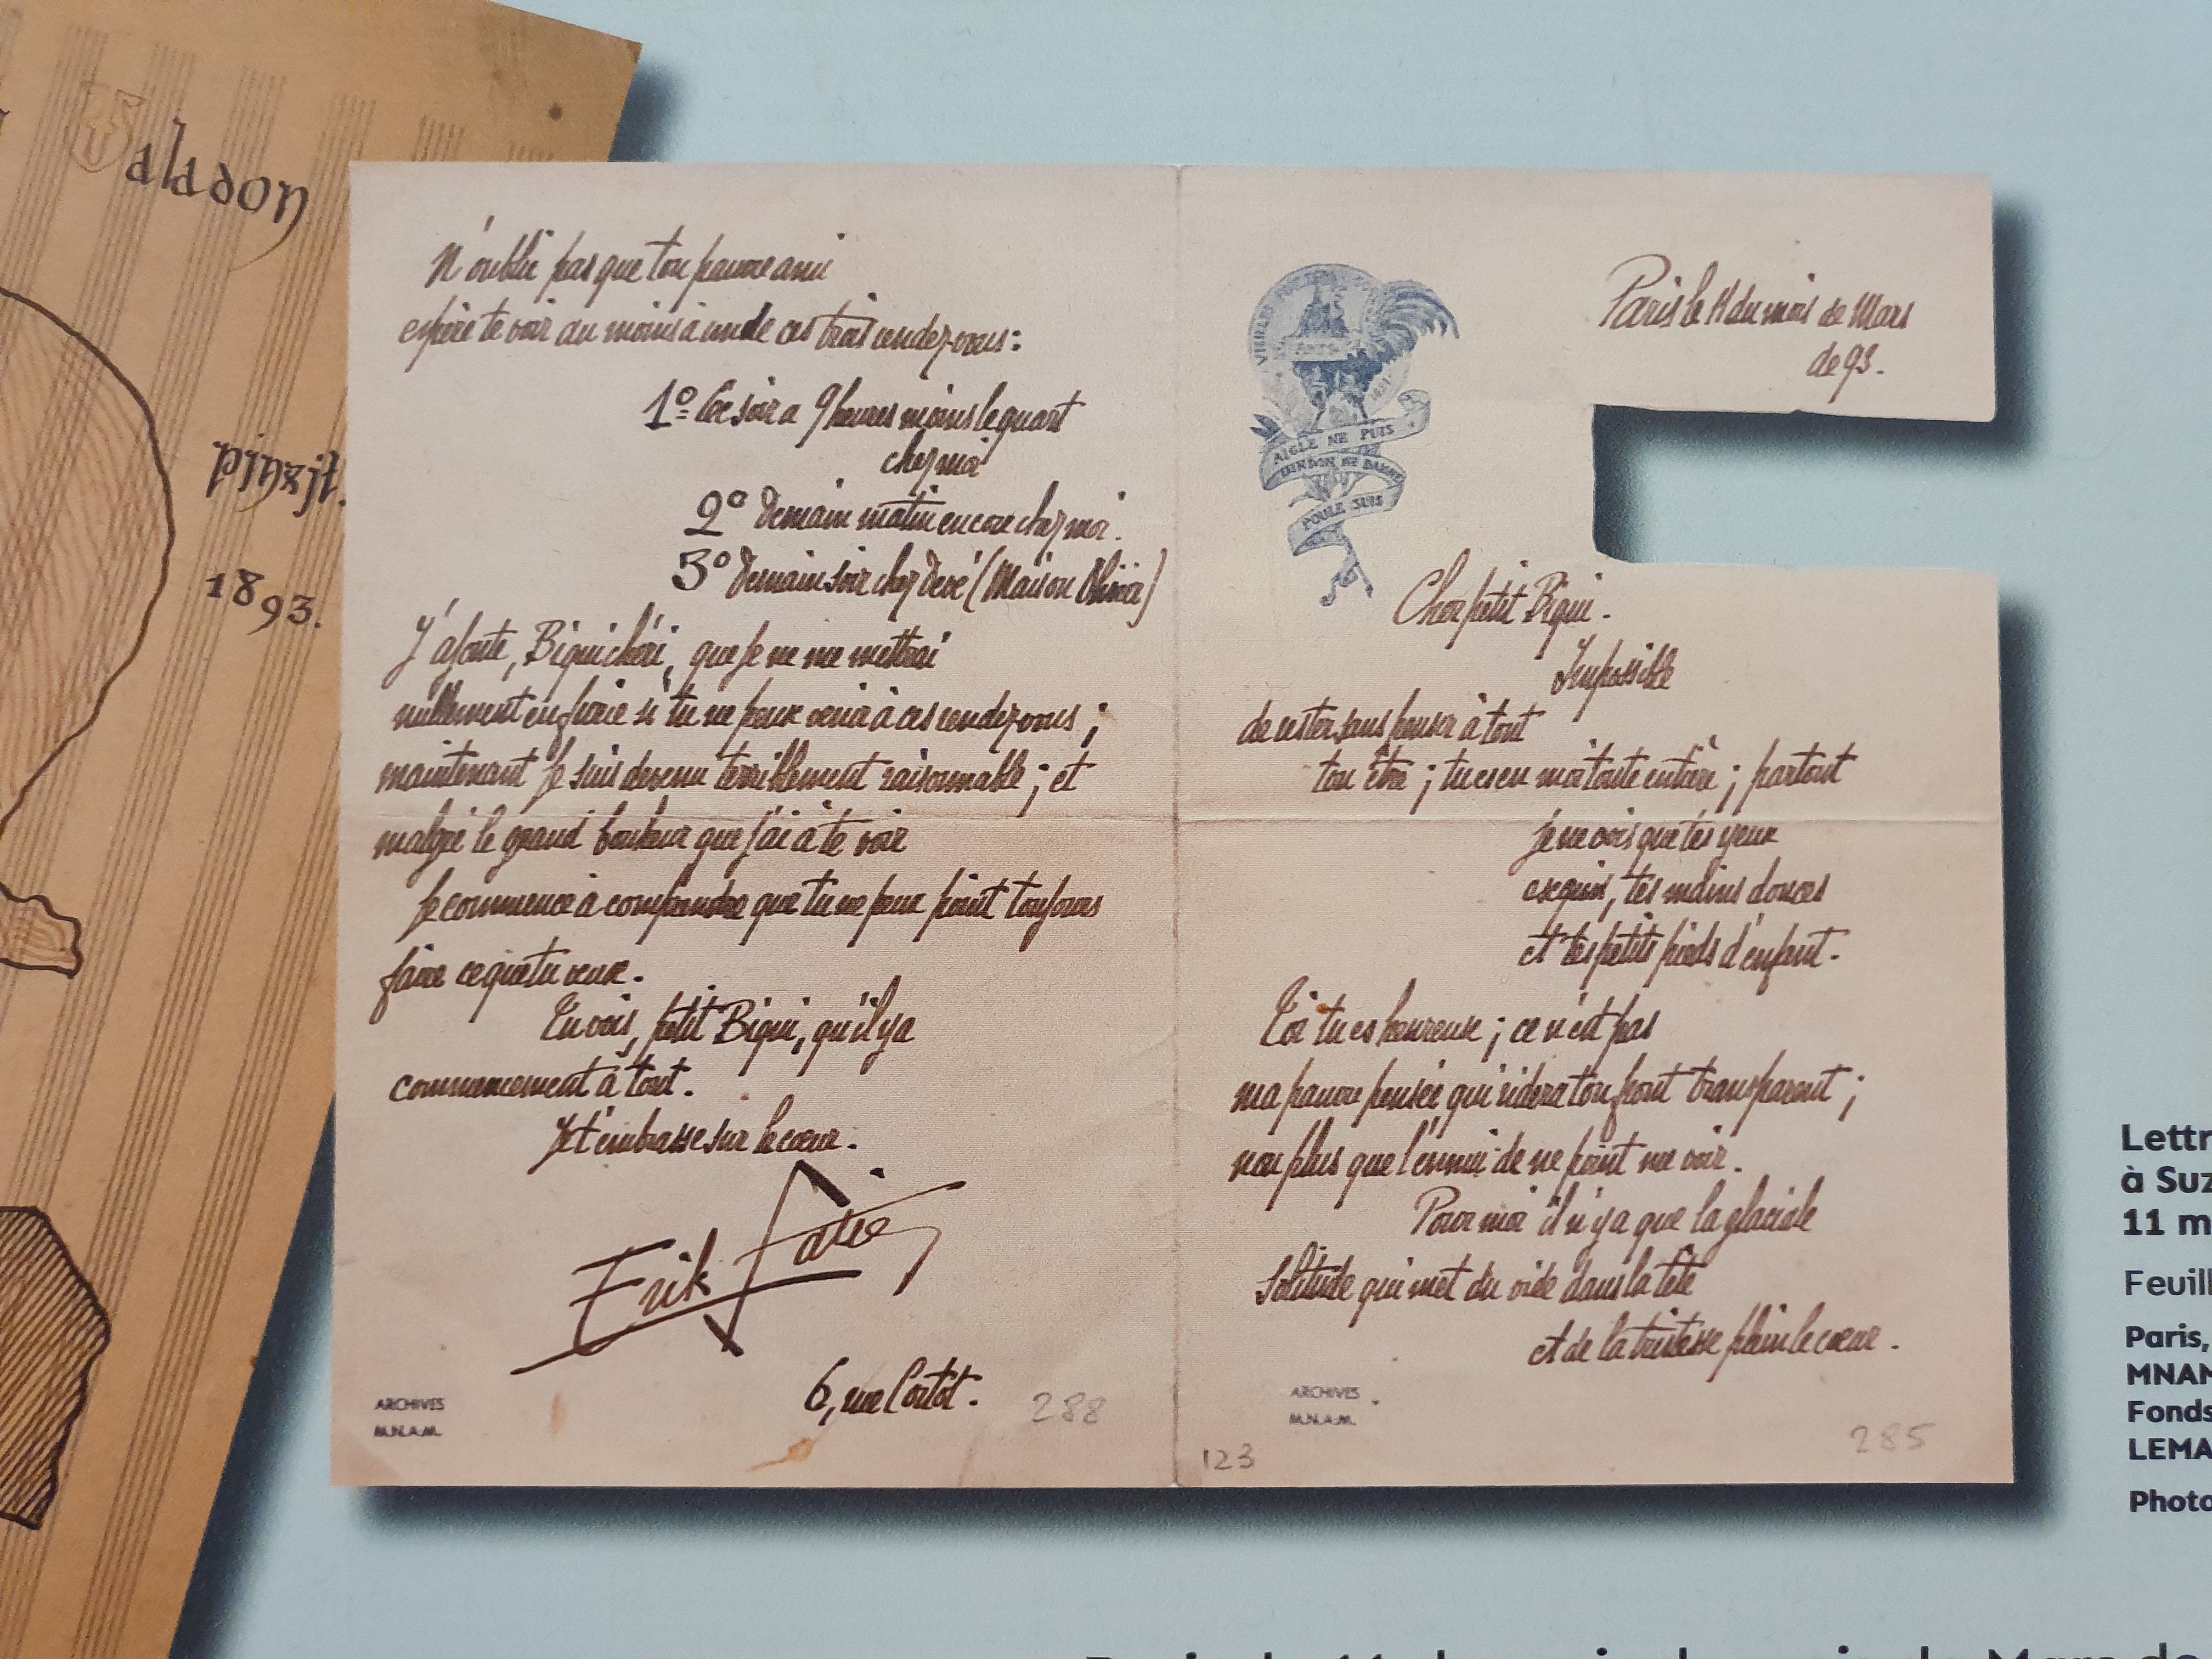 Valadon
pinxit.
1893.
N'oublie pas que ton pauvre ami
espère te voir au moins à un de ces trois rendez-vous:
1º Ce soir a 9 heures moins le quart
chez moi
2º Demain matin encore chez moi.
3º Demain soir chez Devé (Maison Olivier)
J'ajoute, Biqui chéri, que je ne me mettrai
nullement en furie si tu ne peux venir à ces rendez-vous;
maintenant je suis devenu terriblement raisonnable; et
malgré le grand bonheur que j'ai à te voir
je commence à comprendre que tu ne peux point toujours
faire ce que tu veux.
Tu vois, petit Biqui, qu'il y a
commencement à tout.
Je t'embrasse sur le cœur.
Erik Satie
6, rue Cortot.
288
ARCHIVES
M.N.A.M.
VIEILLE
AIGLE NE PUIS
DINDON NE DAIGNE
POULE SUIS
Paris le 11 du mois de Mars
de 93.
Cher petit Biqui.
Impossible
de rester sans penser à tout
ton être; tu es en moi toute entière; partout
je ne vois que tes yeux
exquis, tes mains douces
et tes petits pieds d'enfant.
Toi tu es heureuse; ce n'est pas
ma pauvre pensée qui ridera ton front transparent;
non plus que l'ennui de ne point me voir.
Pour moi il n'y a que la glaciale
solitude qui met du vide dans la tête
et de la tristesse plein le cœur.
ARCHIVES
M.N.A.M.
123
285
Lettr
à Suz
11 m
Feuill
Paris,
MNAM
Fonds
LEMA
Photo
Paris le 11 du mois de Mars de